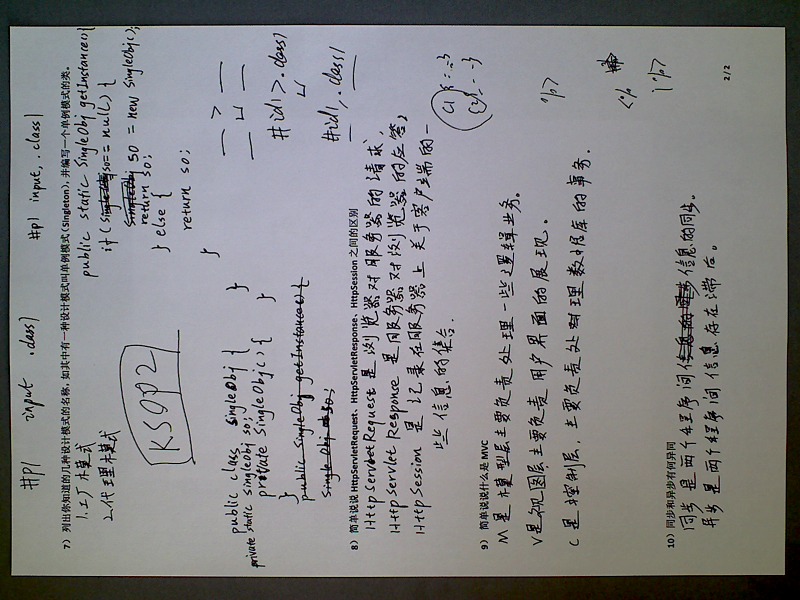 #p1 input .class1
#p1 input, .class1
7）列出你知道的几种设计模式的名称，如其中有一种设计模式叫单例模式(Singleton)，并编写一个单例模式的类。
1.工厂模式
2.代理模式
KS092
public class SingleObj {
private static SingleObj so;
private SingleObj() {
}
public SingleObj getInstance() {
SingleObj so;
public static SingleObj getInstance(){
if (so == null) {
so = new SingleObj();
return so;
} else {
return so;
}
}
}
#id1 > .class1
#id1, .class1
8）简单说说 HttpServletRequest、HttpServletResponse、HttpSession 之间的区别
HttpServletRequest 是浏览器对服务器的请求，
HttpServletResponse 是服务器对浏览器的应答，
HttpSession 是记录在服务器上关于客户端的一
些信息的集合.
9）简单说说什么是 MVC
M是模型层主要负责处理一些逻辑业务。
V是视图层主要负责用户界面的展现。
C是控制层，主要负责处理数据库的事务.
<%
%>
%>
10）同步和异步有何异同
同步是两个程序间信息的同步。
异步是两个程序间信息存在滞后。
2/2